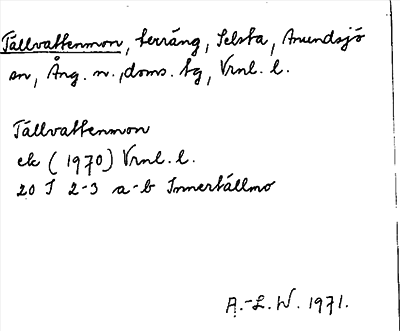 Tällvattenmon, terräng, Selsta, Anundsjö
sn, Ång. n., doms. tg, Vrnl. l.
Tällvattenmon
ek (1970) Vrnl. l.
20 I 2-3 a-b Innertällmo
A.-L. W. 1971.